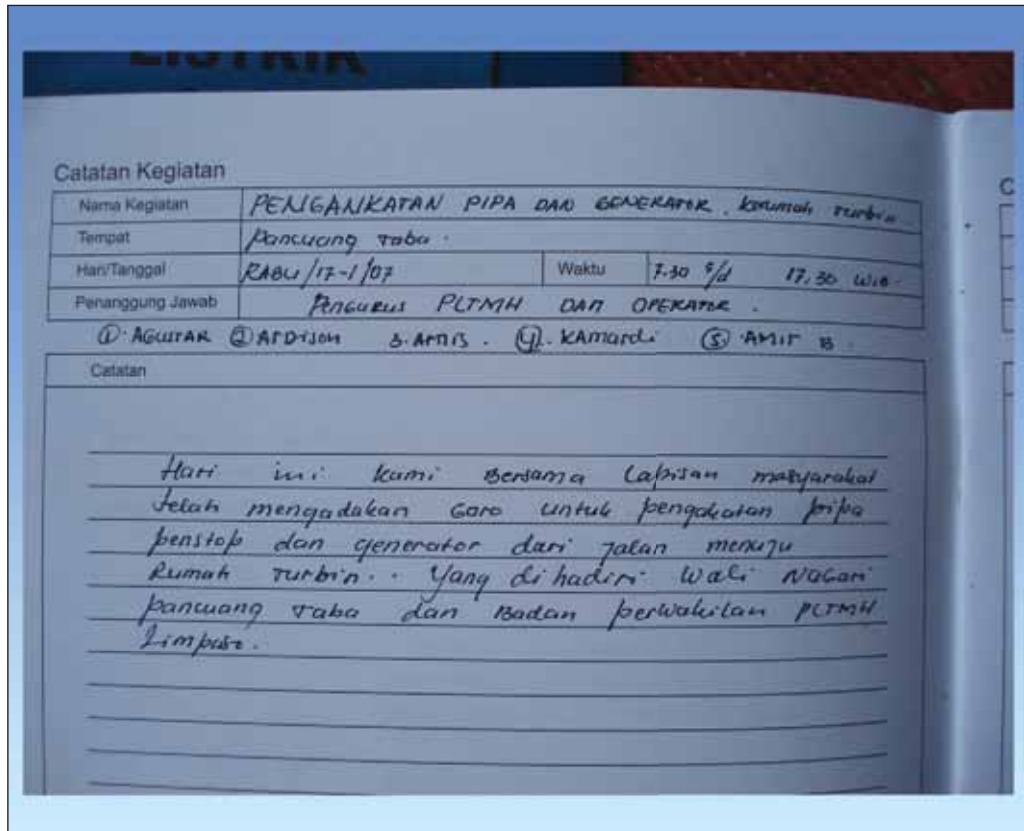 LISTRIK
Catatan Kegiatan
Nama Kegiatan PENGANKATAN PIPA DAN GENERATOR. kerumah turbin
Tempat Pancuang Taba.
Hari/Tanggal RABU/17-1/07 Waktu 7.30 s/d 17.30 WIB.
Penanggung Jawab PENGURUS PLTMH DAN OPERATOR.
① AGUSTAR ② ARDISON 3. ARNIS. ④. KAmardi ⑤ AMIR B.
Catatan
Hari ini kami Bersama Lapisan masyarakat
telah mengadakan Goro untuk pengakatan pipa
penstop dan generator dari jalan menuju
Rumah Turbin.. Yang di hadiri Wali Nagari
pancuang Taba dan Badan perwakilan PLTMH